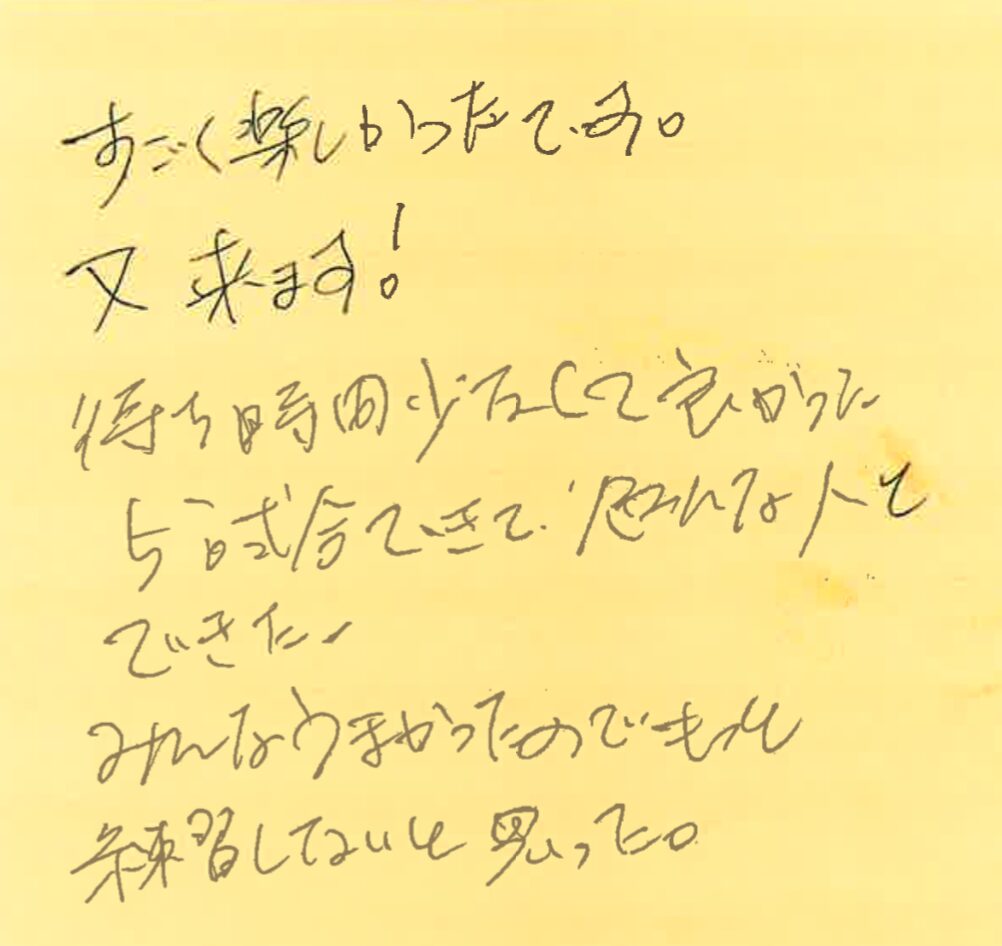 すごく楽しかったです。
又来ます!
待ち時間少なくて良かった
5試合できて、色んな人と
できた。
みんなうまかったのでもっと
練習しないと思った。